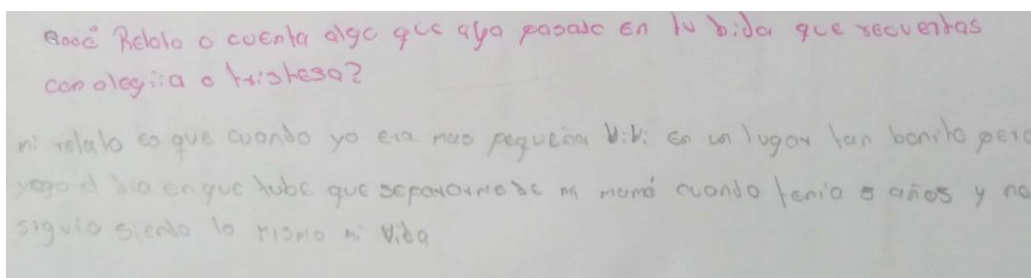 Relato o cuenta algo que aya pasado en tu bida que recuerdas
con alegiia o tristesa?
mi relato es que cuando yo era mas pequeña vivi en un lugar tan bonito pero
yego el dia en que tube que separarme de mi mamá cuando tenia 5 años y no
siguio siendo lo mismo mi vida